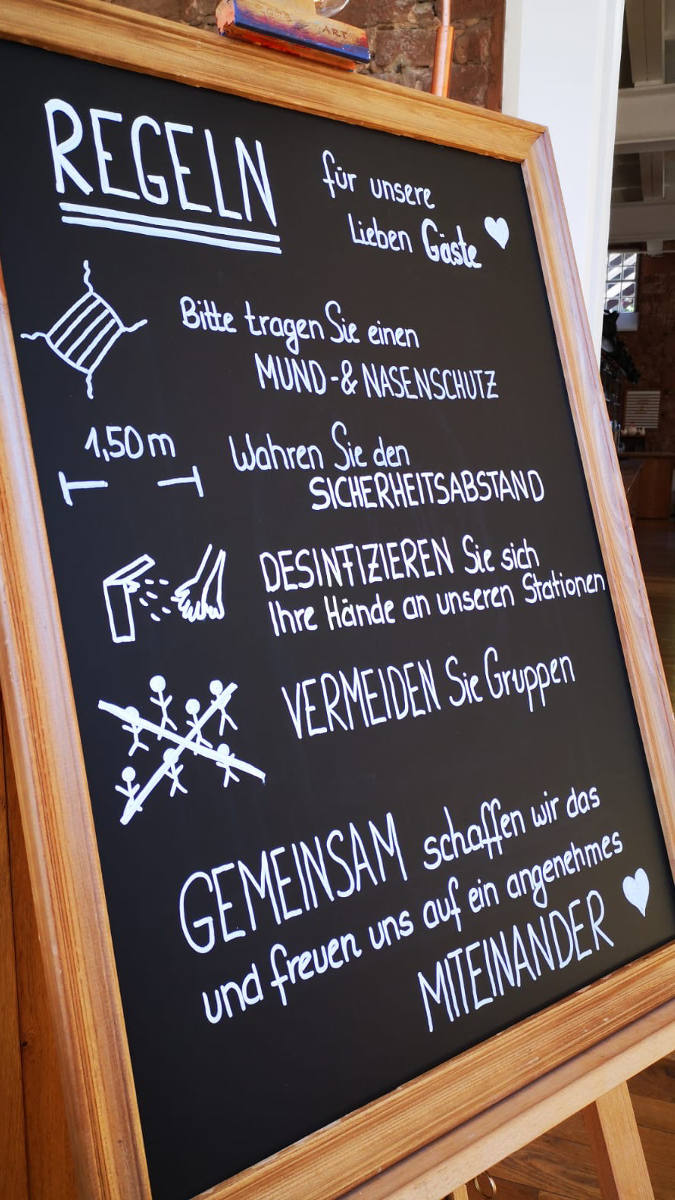 ART
REGELN
für unsere
Lieben Gäste
Bitte tragen Sie einen
MUND-& NASENSCHUTZ
1,50m
Wahren Sie den
SICHERHEITSABSTAND
DESINFIZIEREN Sie sich
Ihre Hände an unseren Stationen
VERMEIDEN Sie Gruppen
GEMEINSAM schaffen wir das
und freuen uns auf ein angenehmes
MITEINANDER